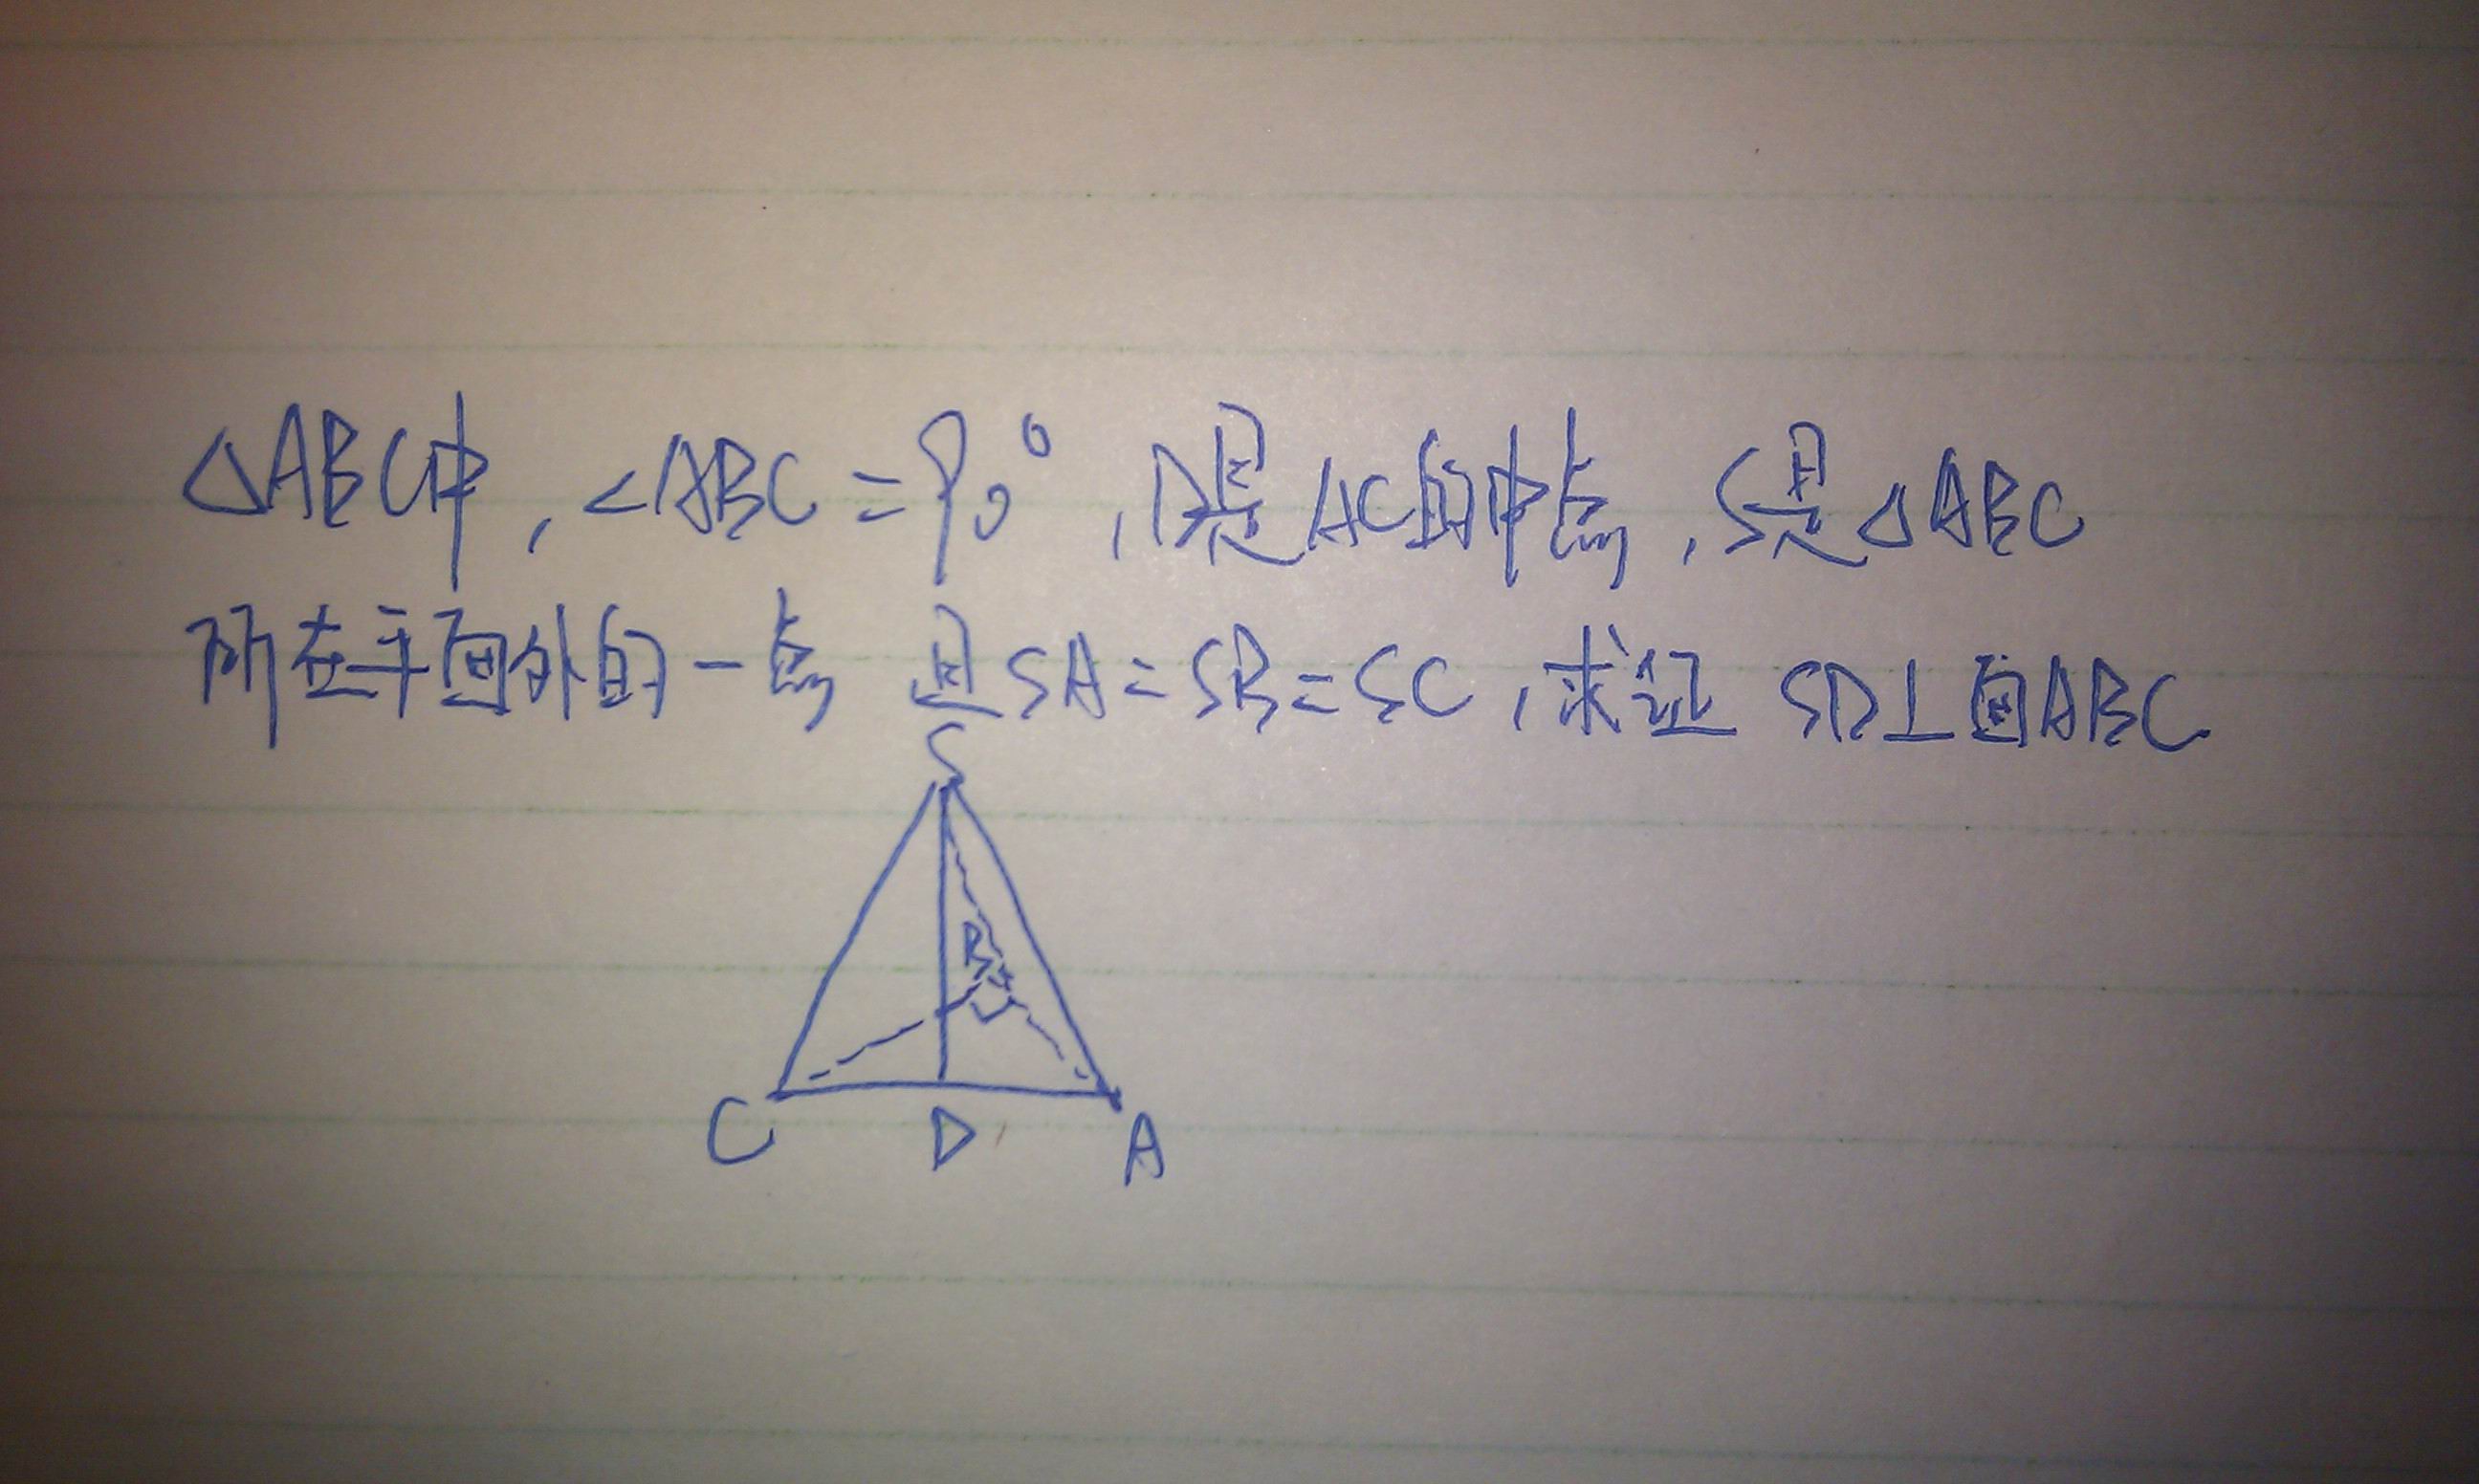 △ABC中,∠ABC=90°,D是AC的中点,S是△ABC
所在平面外的一点 且SA=SB=SC,求证 SD⊥面ABC
S
B
C D A